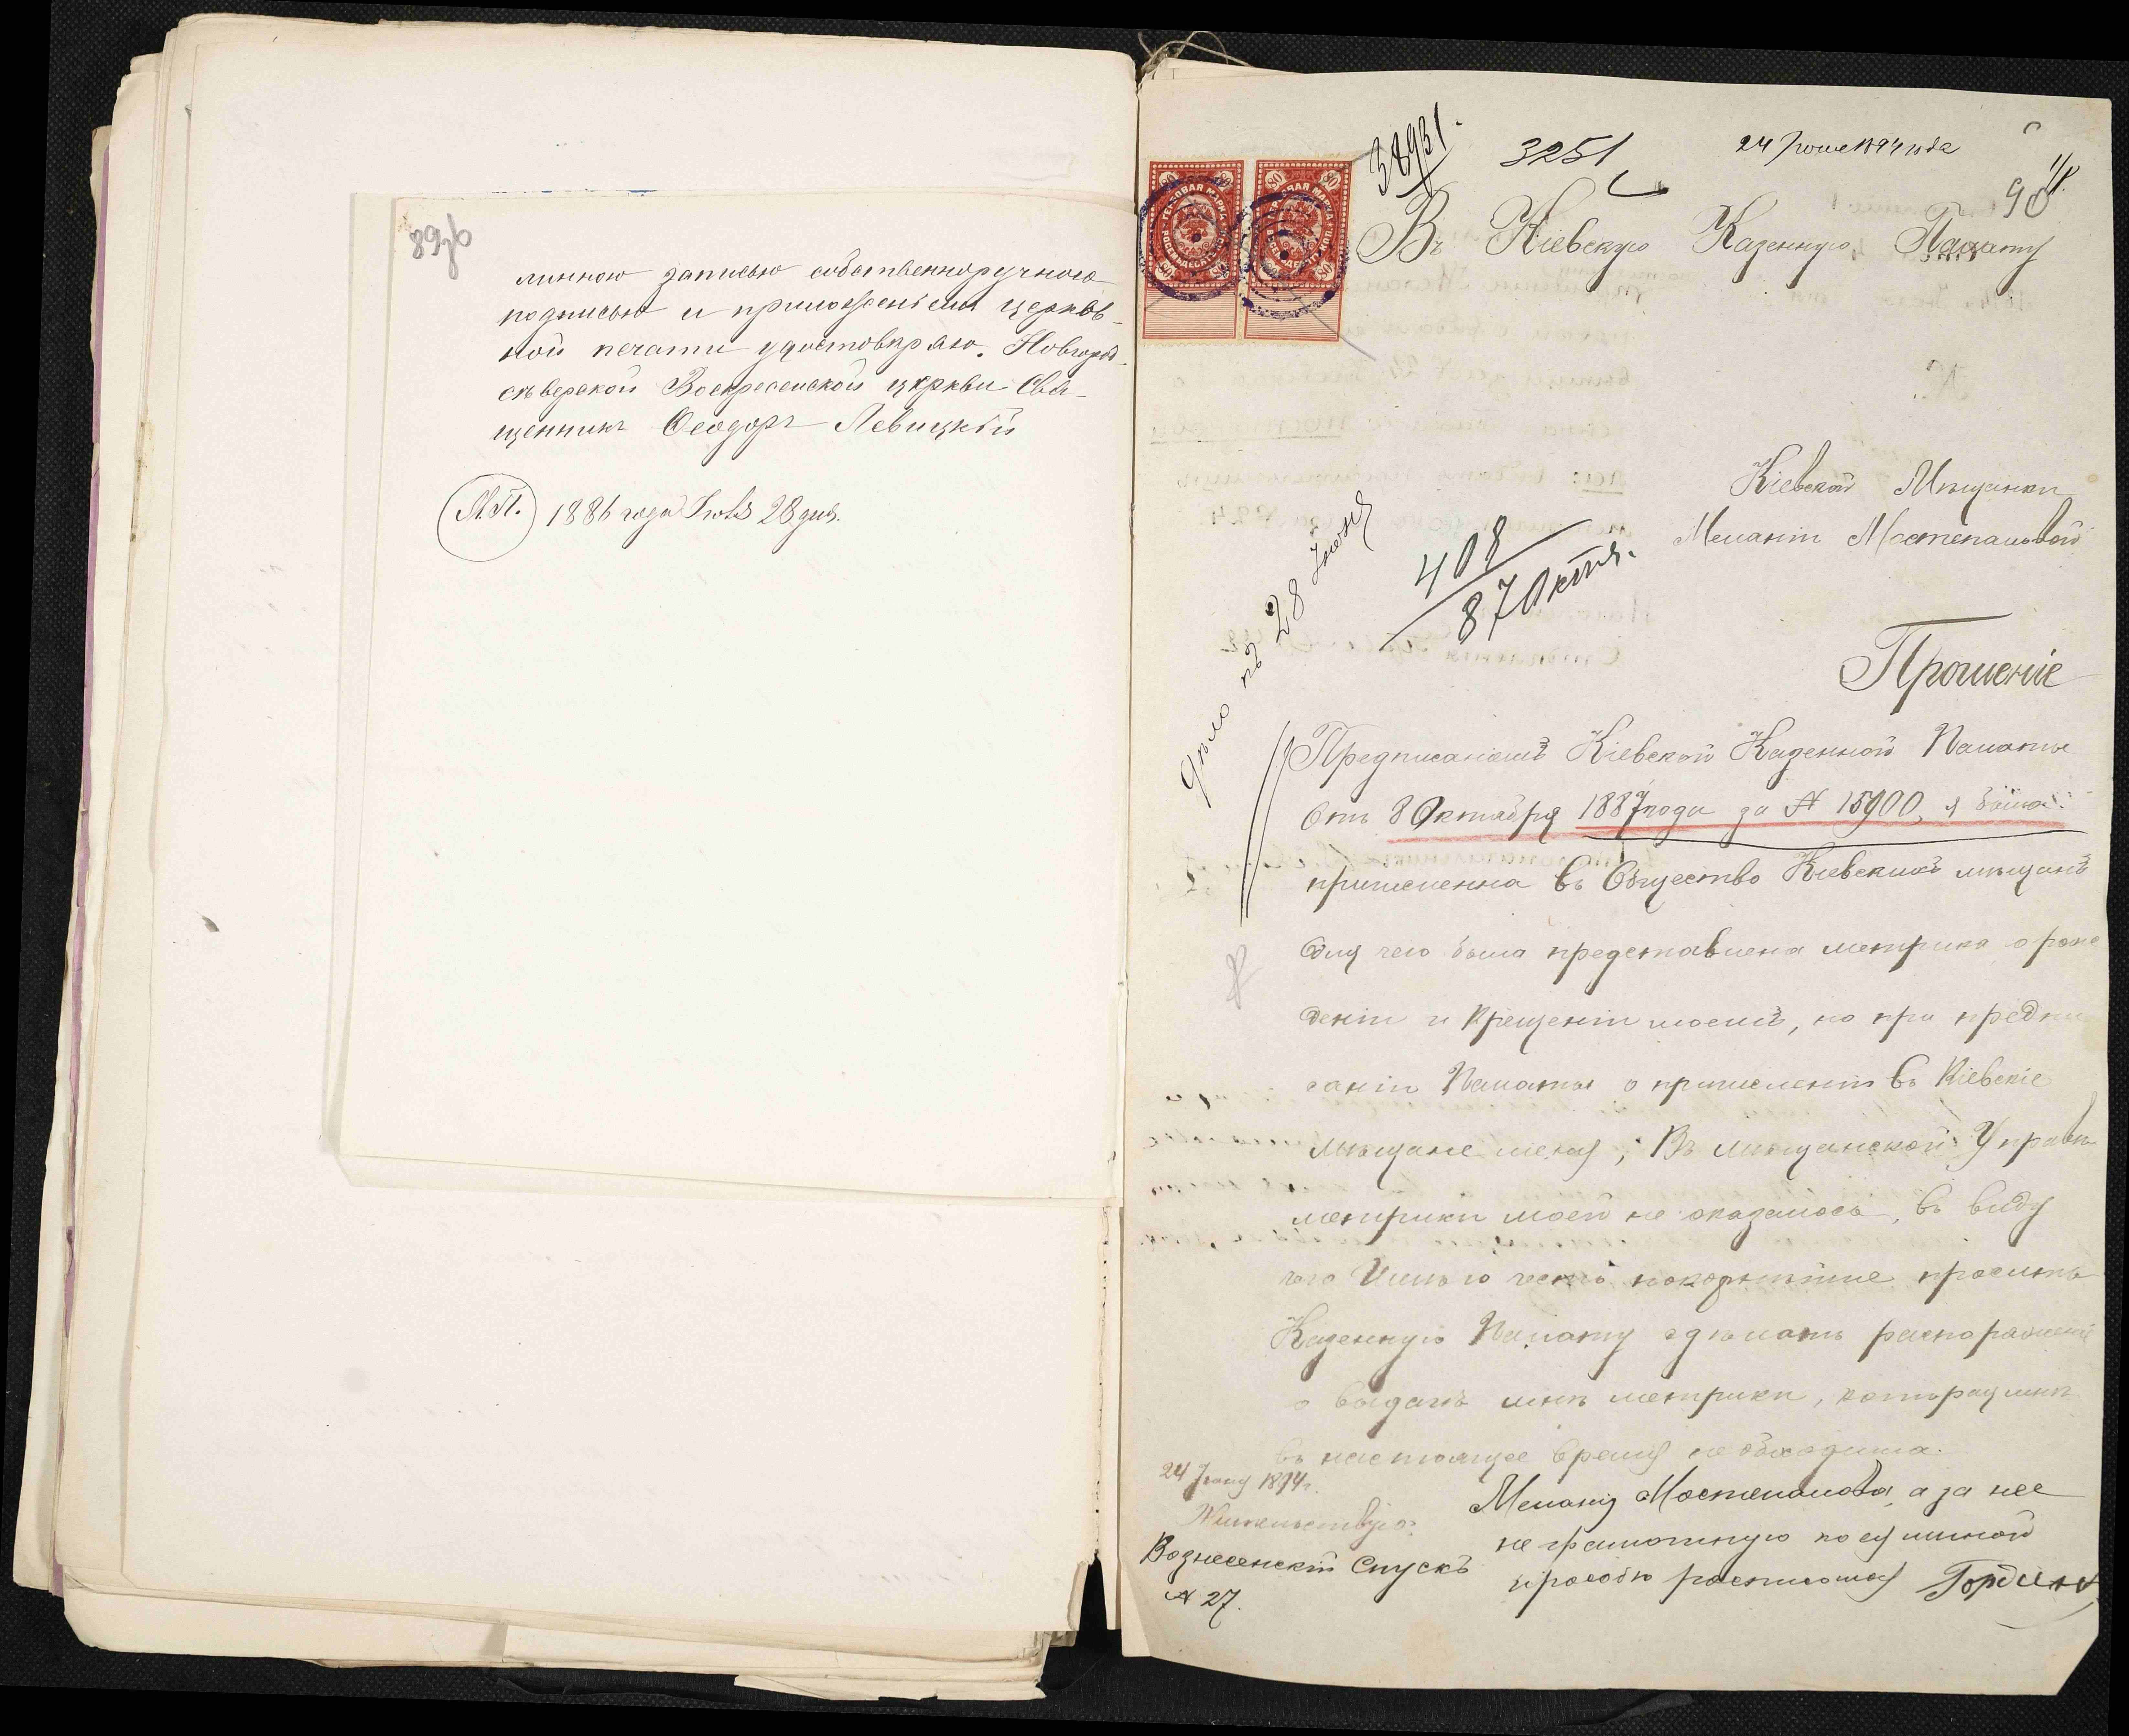 линною записью собственноручною
подписью и приложеніемъ церков-
ной печати удостовѣряю. Новгород-
сѣверской Воскресенской церкви Свя-
щенникъ Ѳеодоръ Левицкій
М.П. 1886 года Іюля 28 дня.
38931.
3251
24 Іюня 1894 года
90
ГЕРБОВАЯ МАРКА
80
ГЕРБОВАЯ МАРКА
80
Въ Кіевскую Казенную Палату
Кіевской Мѣщанки
Меланіи Мостепановой
дѣло 28 Іюня
408
87 Октя.
Прошеніе
Предписаніемъ Кіевской Казенной Палаты
Отъ 8 Октября 1887 года за № 15900, я была
причисленна въ Общество Кіевскихъ мѣщанъ
Для чего была представлена метрика о рож
деніи и Крещеніи моемъ, но при предпи
саніи Палаты о причисленіи въ Кіевскіе
мѣщане меня, Въ мѣщанской Управѣ
метрики моей не оказалось, въ виду
чего Имѣю честь покорнѣйше просить
Казенную Палату здѣлать распоряженіе
о выдачѣ мнѣ метрики, которая мнѣ
въ настоящее время необходима.
24 Іюня 1894 г.
Меланія Мостепанова, а за нее
Жительствую:
не грамотную по ея личной
Вознесенскій Спускъ
прозбѣ росписался Гординъ
№ 27.